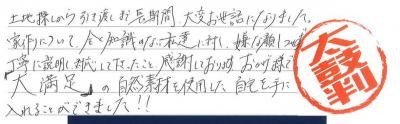 土地探しから引き渡しまで長期間、大変お世話になりました。
家作りについて、全く知識のない私達に対し、嫌な顔1つせず
丁寧に説明し対応して下さったこと、感謝しております。おかげ様で
大満足の自然素材を使用した自宅を手に
入れることができました!!
太鼓判